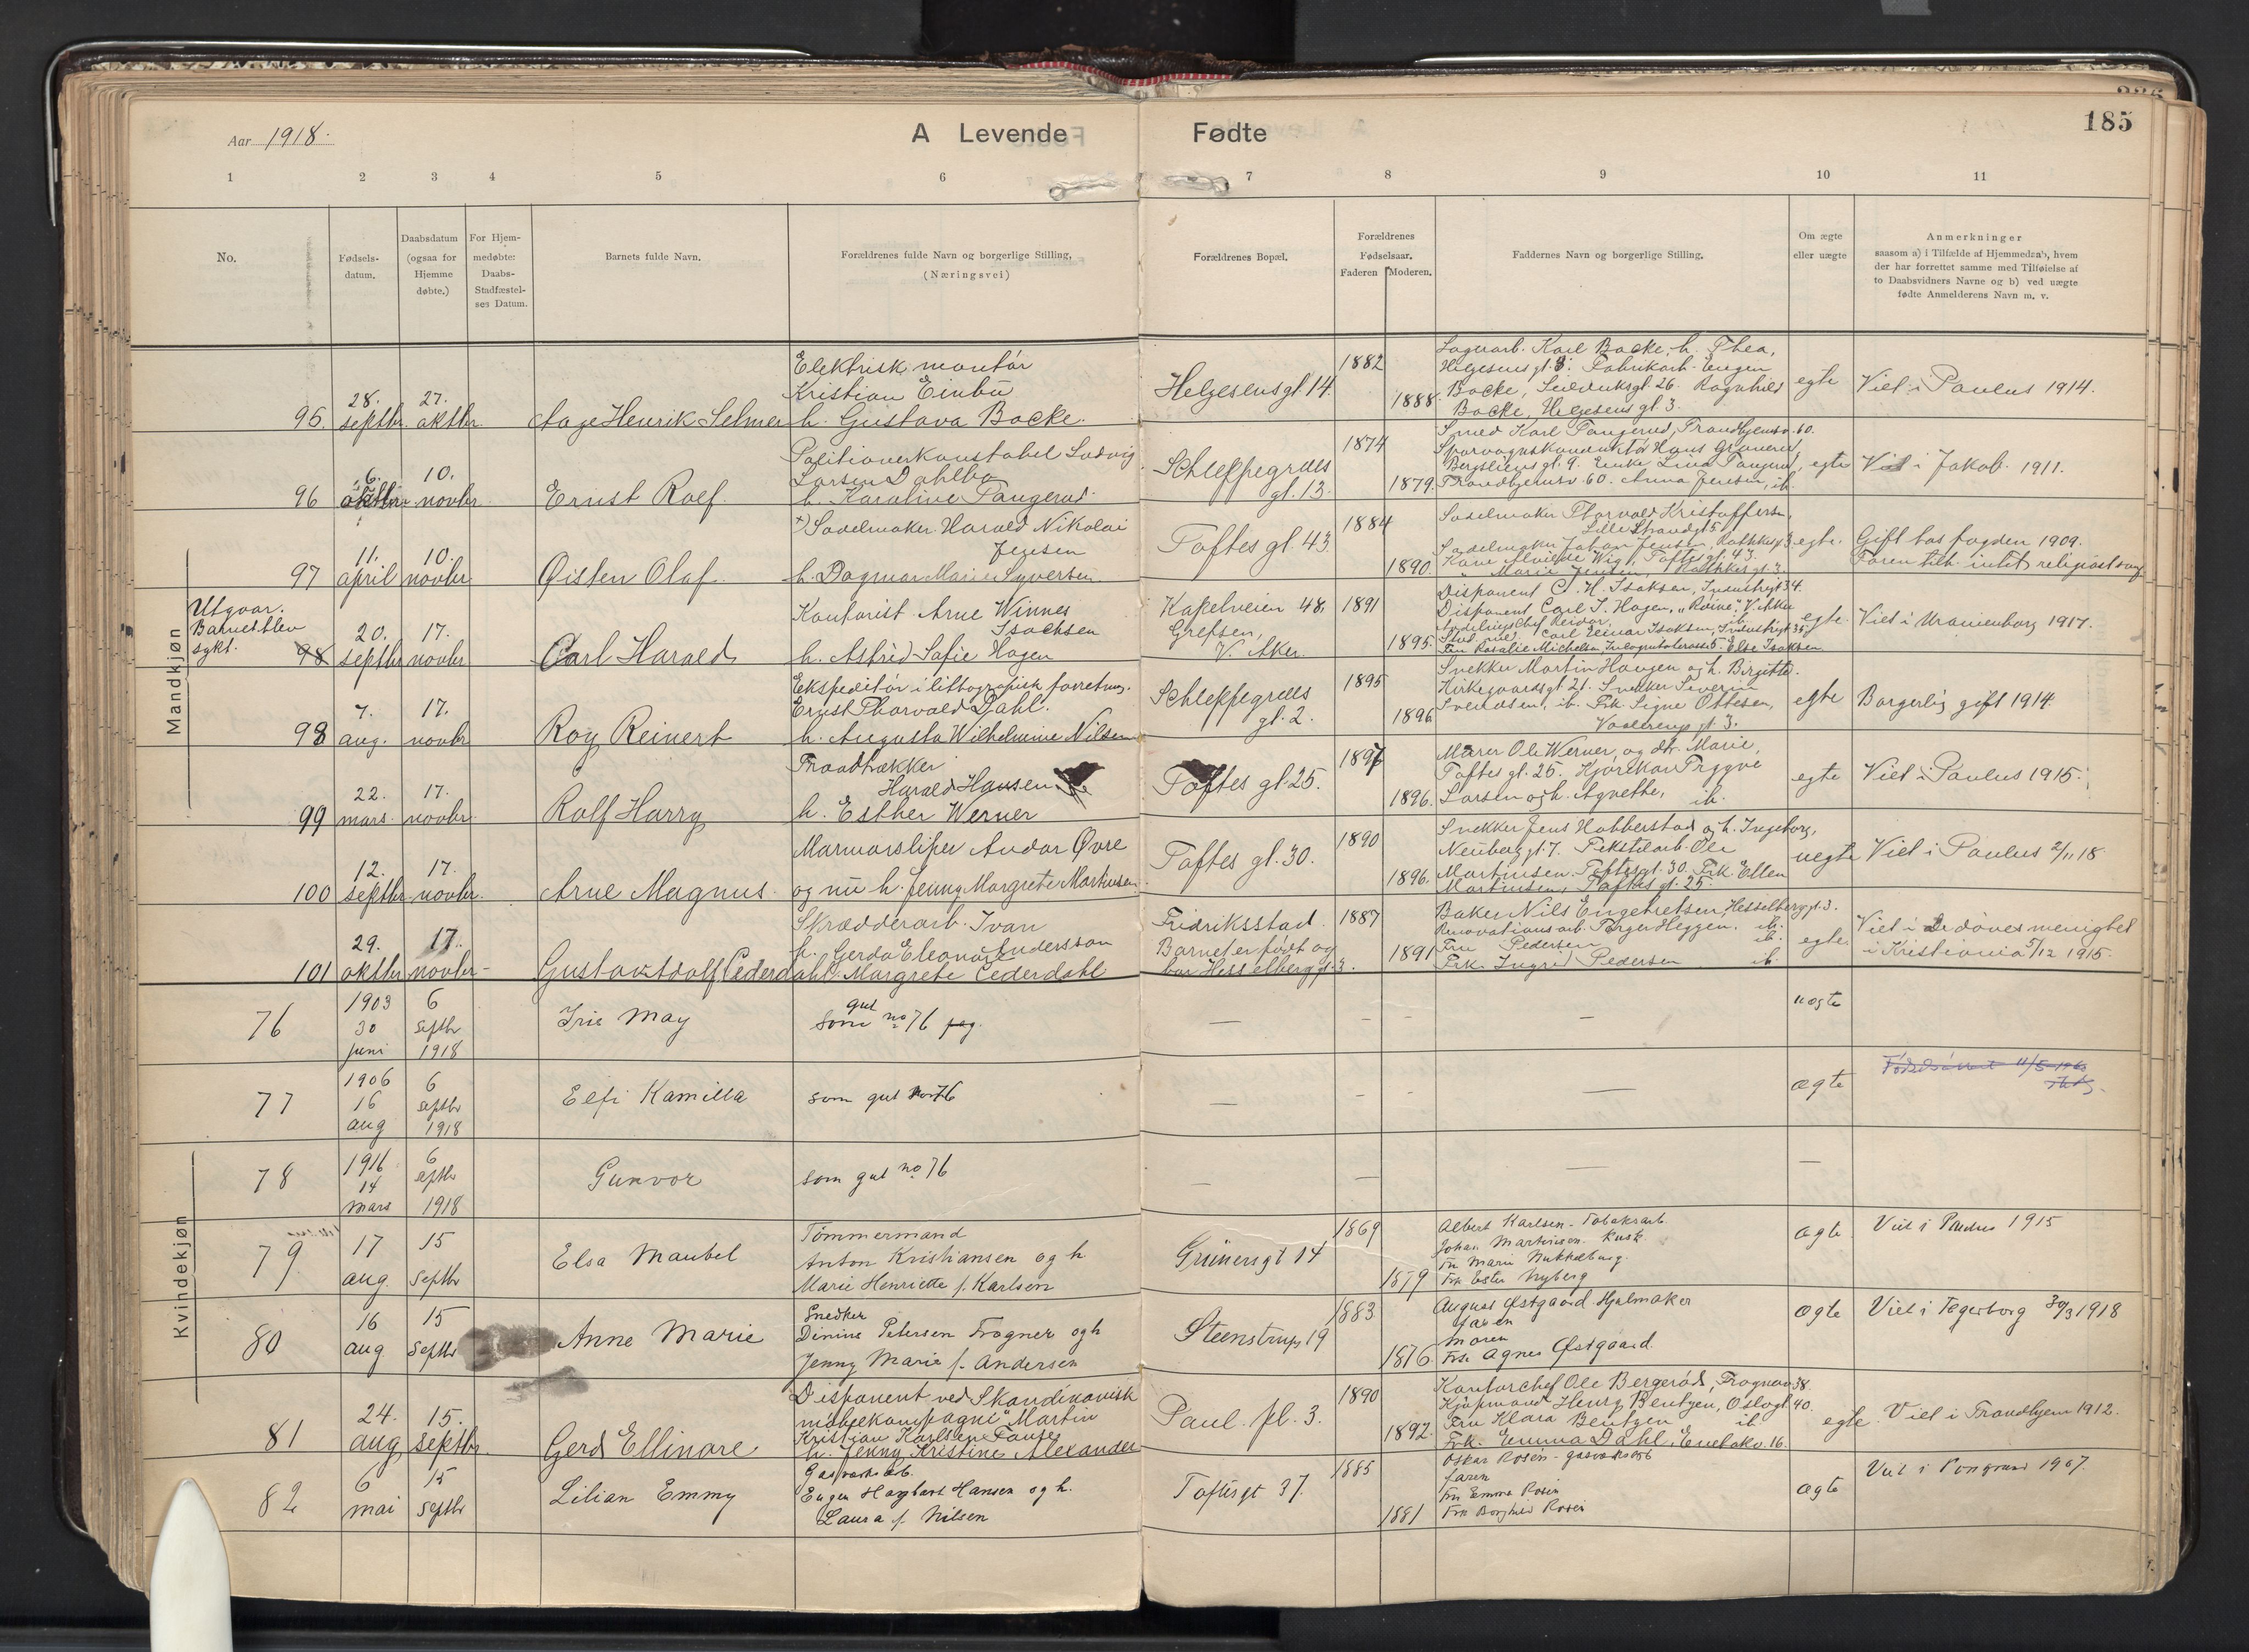 185
Aar 1918.
A Levende Fødte
1 2 3 4 5 6 7 8 9 10 11
No.
Fødsels-
datum.
Daabsdatum
(ogsaa for
Hjemme
døbte.)
For Hjem-
medøbte:
Daabs-
Stadfæstel-
ses Datum.
Barnets fulde Navn.
Forældrenes fulde Navn og borgerlige Stilling,
(Næringsvei)
Forældrenes Bopæl.
Forældrenes
Fødselsaar.
Faderen Moderen.
Faddernes Navn og borgerlige Stilling.
Om ægte
eller uægte
Anmerkninger
saasom a) i Tilfælde af Hjemmedaab, hvem
der har forrettet samme med Tilføielse af
to Daabsvidners Navne og b) ved uægte
fødte Anmelderens Navn m. v.
Mandkjøn
95. 28. septbr. 27. oktbr. Aage Henrik Selmer
Elektrisk montør
Kristian Einbu
h. Gustava Backe.
Helgesensgt 14.
1882
1888.
Lagerarb. Karl Backe, h. Thea,
Helgesensgt. 3. Fabrikarb. Eugen
Backe, Seilduksgt. 26. Ragnhild
Backe, Helgesens gt. 3.
egte
Viet i Paulus 1914.
96 6. oktbr. 10. novbr. Ernst Rolf.
Politioverkonstabel Ludvig
Larsen Dahlbo
h. Karoline Tangerud.
Schleppegrells
gt. 13.
1874
1879.
Smed Karl Tangerud, Trondhjemsv. 60.
Sporvognskonduktør Hans Granerud,
Bergsliens gt. 9. Enke Lina Tangerud,
Trondhjemsv. 60. Anna Jensen, ib.
egte
Viet i Jakob. 1911.
97 11. april 10. novbr Øisten Olaf.
+) Sadelmaker Harald Nikolai
Jensen
h. Dagmar Marie Syversen
Toftes gt. 43.
1884
1890.
Sadelmaker Thorvald Kristoffersen,
Lille Strandgt 5
egte.
Gift hos fogden 1909.
Faren tilh. intet religiøst samf.
Utgaar.
Barnet blev
sykt.
98 20. septbr 17. novbr. Carl Harald
Kontorist Arne Winnes
Isachsen
h. Astrid Sofie Hagen
Kapelveien 48,
Grefsen,
V. Aker.
1891
1895.
Disponent C. H. Isaksen, Industrigt 34.
Disponent Carl S. Hagen, "Roine", V. Aker
egte.
Viet i Uranienborg 1917.
98 7. aug. 17. novbr Roy Reinert
Ekspeditør i littografisk forretning.
Ernst Thorvald Dahl.
h. Augusta Wilhelmine Nilsen
Schleppegrells
gt. 2.
1895
1896.
Snekker Martin Haugen og h. Birgitte.
Kirkegaardsgt 21. Snekker Severin
Svendsen, ib. Frk. Signe Ottesen,
gt. 3.
egte
Borgerlig gift 1914.
99 22. mars. 17. novbr. Rolf Harry
Traadtrækker
Harald Hansen
h. Esther Werner
Toftes gt 25.
1896.
Murer Ole Werner, og dtr. Marie,
Toftes gt. 25. Kjørekar Trygve
Larsen og h. Agnethe, ib.
egte
Viet i Paulus 1915.
100 12. septbr. 17. novbr. Arne Magnus.
Marmorsliper Andor Øvre
og nu h. Jenny Margrete Martinsen.
Toftes gt. 30.
1890
1896.
Snekker Jens Hobberstad og h. Ingeborg,
Neuberggt. 7. Tekstilarb. Ole
Martinsen. Toftesgt. 30. Frk. Ellen
Martinsen, Toftes gt. 25.
uegte
Viet i Paulus 2/11 18
101 29. oktbr 17. novbr. Gustav Adolf Cederdahl
Skrædderarb. Ivan
Andersson
h. Gerda Eleonore
Margrete Cederdahl
Fredriksstad.
Barnet er født og
bor Hesselberggt. 3.
1887
1891
Baker Nils Engebretsen, Hesselberggt. 3.
Renovationsarb. Torger Heggen. ib.
Fru Pedersen ib.
Frk. Ingrid Pedersen ib.
egte
Viet i De døves menighet
i Kristiania 5/12 1915.
Kvindekjøn
76 1903 30 juni 6 septbr 1918 Iris May
som gut no 76
uægte
77 1906 16 aug 6 septbr 1918 Elfi Kamilla
som gut no 76
ægte
78 1916 14 mars 6 septbr 1918 Gunvor
som gut no. 76
79 17 aug. 15 septbr Elsa Maubel
Tømmermand
Anton Kristiansen og h
Marie Henriette f. Karlsen
Grünersgt 14
1869
1879
Albert Karlsen - Tobaksarb.
Johan Martinsen. Kusk.
Frk Ester Nyberg
ægte
Viet i Paulus 1915
80 16 aug 15 septbr Anne Marie
Snedker
Dinius Petersen Frogner og h
Jenny Marie f. Andersen
Steenstrups 19
1883
1876
August Østgaard. Hjulmaker
faren
moren
Frk Agnes Østgaard.
ægte
Viet i Fagerborg 30/3 1918
81 24. aug 15. septbr. Gerd Ellinore
Disponent ved Skandinavisk
møbelkompagni Martin
Kristian Karlsen
h. Jenny Kristine Alexander
Paul. pl. 3.
1890
1892.
Kontorchef Ole Bergerød, Frognerv 38.
Kjøpmand Henry Bentzen, Oslogt 40.
Fru Klara Bentzen ib.
Frk. Emma Dahl, Enebakv. 16.
egte.
Viet i Trondhjem 1912.
82 6 mai 15 septbr Lilian Emmy
Gasverksarb.
Eugen Hagbart Hansen og h.
Laura f. Nilsen
Toftesgt 37.
1885
1881
Oskar Rosén - gasverksarb
faren
Fru Emma Rosén
Frk Borghild Rosén
ægte
Viet i 1907.